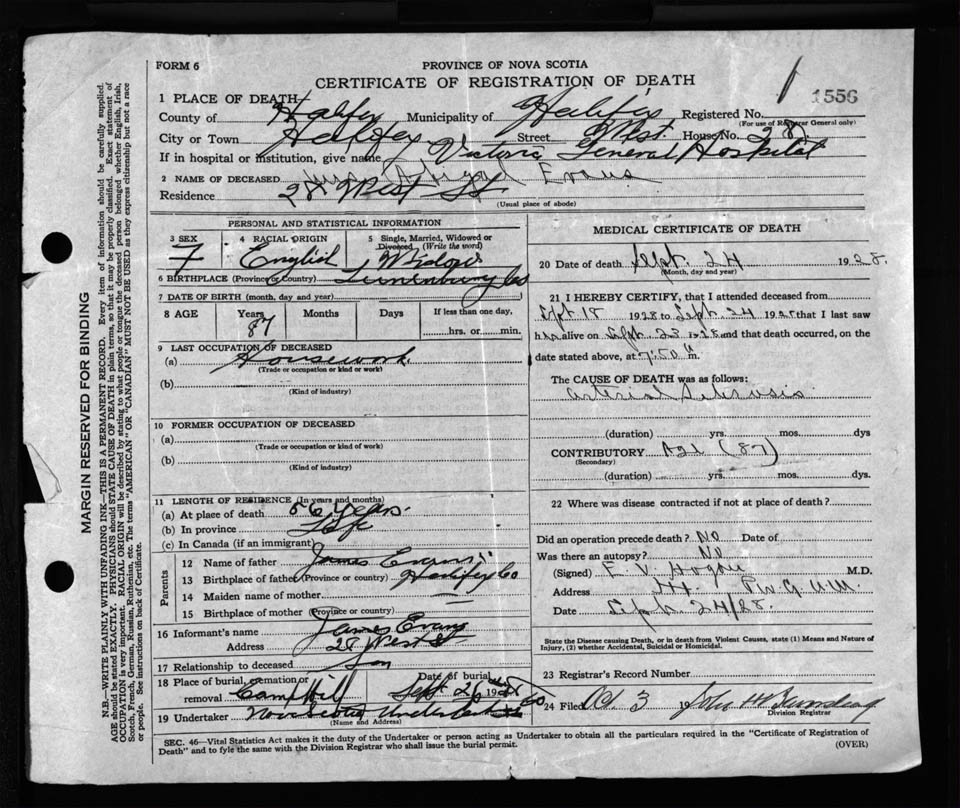 FORM 6
PROVINCE OF NOVA SCOTIA
CERTIFICATE OF REGISTRATION OF DEATH
1556
1 PLACE OF DEATH
County of Halifax Municipality of Halifax Registered No.
(For use of Registrar General only)
City or Town Halifax Street West House No. 28
If in hospital or institution, give name Victoria General Hospital
2 NAME OF DECEASED Mrs. Abigail Evans
Residence 28 West St
(Usual place of abode)
PERSONAL AND STATISTICAL INFORMATION
3 SEX 4 RACIAL ORIGIN 5 Single, Married, Widowed or Divorced (Write the word)
F English Widow
6 BIRTHPLACE (Province or Country) Lunenburg Co
7 DATE OF BIRTH (month, day and year)
8 AGE Years Months Days If less than one day,
87 hrs. or min.
9 LAST OCCUPATION OF DECEASED
(a) Housework
(Trade or occupation or kind or work)
(b)
(Kind of industry)
10 FORMER OCCUPATION OF DECEASED
(a)
(Trade or occupation or kind of work)
(b)
(Kind of industry)
11 LENGTH OF RESIDENCE (In years and months)
(a) At place of death 56 years.
(b) In province Life
(c) In Canada (if an immigrant)
Parents
12 Name of father James Evans
13 Birthplace of father (Province or country) Halifax Co
14 Maiden name of mother
15 Birthplace of mother (Province or country)
16 Informant's name James Evans
Address 28 West St
17 Relationship to deceased Son
18 Place of burial, cremation or removal Camp Hill Date of burial Sept. 26 19
19 Undertaker Nova Scotia Undertaking Co
(Name and Address)
MEDICAL CERTIFICATE OF DEATH
20 Date of death Sept. 24 1928.
(Month, day and year)
21 I HEREBY CERTIFY, that I attended deceased from
Sept 18 1928 to Sept. 24 1928 that I last saw
her alive on Sept. 23 1928 and that death occurred, on the
date stated above, at 7:50 m.
The CAUSE OF DEATH was as follows:
Arterial Sclerosis
(duration) yrs. mos. dys
CONTRIBUTORY Age (87)
(Secondary)
(duration) yrs. mos. dys.
22 Where was disease contracted if not at place of death?
Did an operation precede death? No Date of
Was there an autopsy? No
(Signed) E. V. Hogan M.D.
Date Sept. 24/28.
State the Disease causing Death, or in death from Violent Causes, state (1) Means and Nature of Injury, (2) whether Accidental, Suicidal or Homicidal.
23 Registrar's Record Number
24 Filed Oct 3 19
Division Registrar
SEC. 46—Vital Statistics Act makes it the duty of the Undertaker or person acting as Undertaker to obtain all the particulars required in the "Certificate of Registration of
Death" and to fyle the same with the Division Registrar who shall issue the burial permit. (OVER)
MARGIN RESERVED FOR BINDING
N.B.—WRITE PLAINLY WITH UNFADING INK—THIS IS A PERMANENT RECORD. Every item of information should be carefully supplied.
AGE should be stated EXACTLY. PHYSICIANS should STATE CAUSE OF DEATH in plain terms, so that it may be properly classified. Exact statement of
OCCUPATION is very important. RACIAL ORIGIN will be described by stating to what people or tongue the deceased person belonged whether English, Irish,
Scotch, French, German, Russian, Ruthenian, etc. The terms "AMERICAN" OR "CANADIAN" MUST NOT BE USED as they express citizenship but not a race
or people. See instructions on back of Certificate.